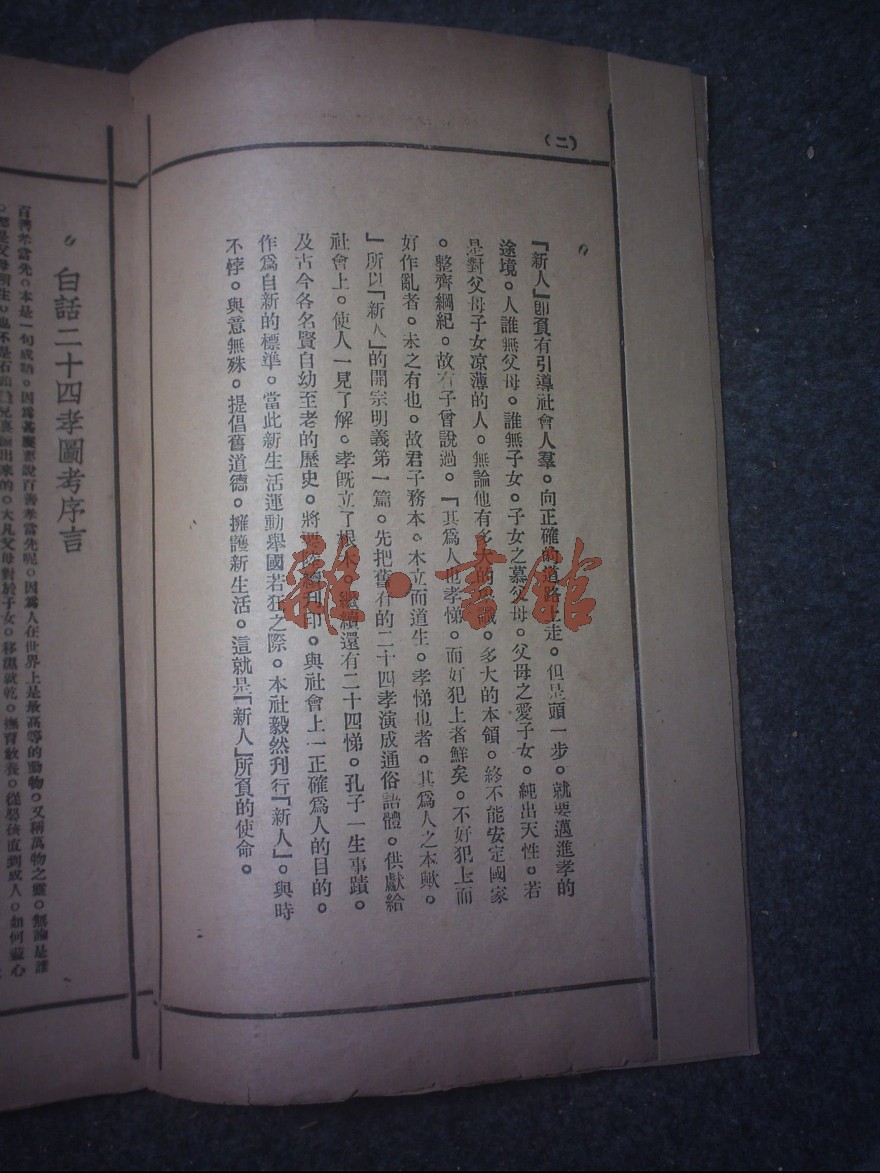 (二)
『新人』卽負有引導社會人羣。向正確的道路上走。但是頭一步。就要邁進孝的
途境。人誰無父母。誰無子女。子女之慕父母。父母之愛子女。純出天性。若
是對父母子女凉薄的人。無論他有多大的。多大的本領。終不能安定國家
。整齊綱紀。故有子曾說過。『其爲人也孝悌。而好犯上者鮮矣。不好犯上而
好作亂者。未之有也。故君子務本。本立而道生。孝悌也者。其爲人之本歟。
』所以『新人』的開宗明義第一篇。先把舊有的二十四孝演成通俗語體。供獻給
社會上。使人一見了解。孝旣立了根本。繼續還有二十四悌。孔子一生事蹟。
及古今各名賢自幼至老的歷史。將要陸續刊印。與社會上一正確爲人的目的。
作爲自新的標準。當此新生活運動舉國若狂之際。本社毅然刊行『新人』。與時
不悖。與意無殊。提倡舊道德。擁護新生活。這就是『新人』所負的使命。
白話二十四孝圖考序言
百善孝當先。本是一句成語。因爲甚麽要說百善孝當先呢。因爲人在世界上是最高等的動物。又稱萬物之靈。無論是誰
。都是父母所生。也不是石頭出來的。大凡父母對於子女。移濕就乾。撫育敎養。從嬰孩直到成人。如何盡心
雜·書館